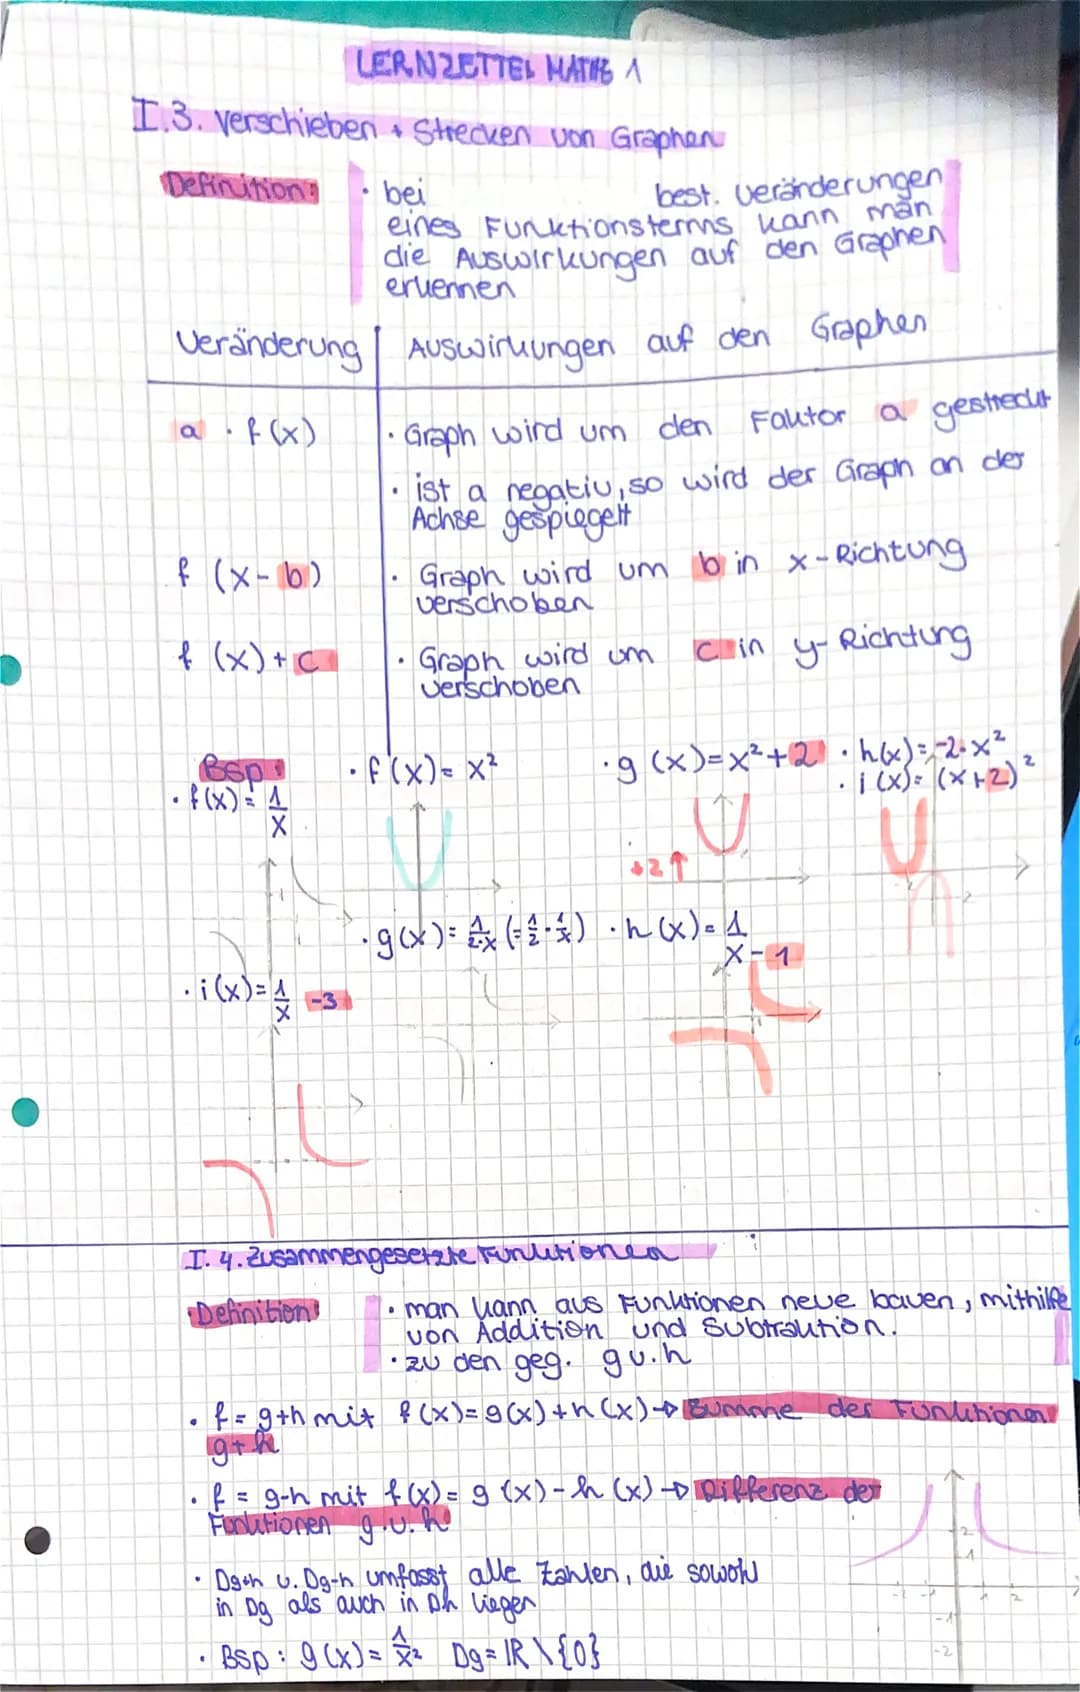 LERNZETTEL MATHE 1
I.3. Verschieben + Strecken von Graphen
Definition:
• bei best. Veränderungen
eines Funktionsterms kann man
die Auswirkungen auf den Graphen
erkennen
Veränderung Auswirkungen auf den Graphen
a · f(x) • Graph wird um den Faktor a gestreckt
• ist a negativ, so wird der Graph an der
Achse gespiegelt
f (x-b) • Graph wird um b in x-Richtung
verschoben
f (x)+c • Graph wird um c in y-Richtung
verschoben
Bsp: • f(x)= x² • g (x)=x²+2 • h(x)=-2·x²
• f(x)= 1/x • i(x)= (x+2)²
+2↑
• g(x)= 1/2·x (=1/2·1/x) • h(x)= 1/x-1
• i(x)=1/x -3
I.4. Zusammengesetzte Funktionen
Definition:
• man kann aus Funktionen neue bauen, mithilfe
von Addition und Subtraktion.
• zu den geg. g u. h
• f= g+h mit f(x)=g(x)+h(x)→ Summe der Funktionen
g+h
• f = g-h mit f(x)= g (x)-h (x)→ Differenz der
Funktionen g u. h
2
1
-2 -1 1 2
-1
-2
• Dg+h u. Dg-h umfasst alle Zahlen, die sowohl
in Dg als auch in Dh liegen
• Bsp: g(x)= 1/x² Dg=ℝ\{0}